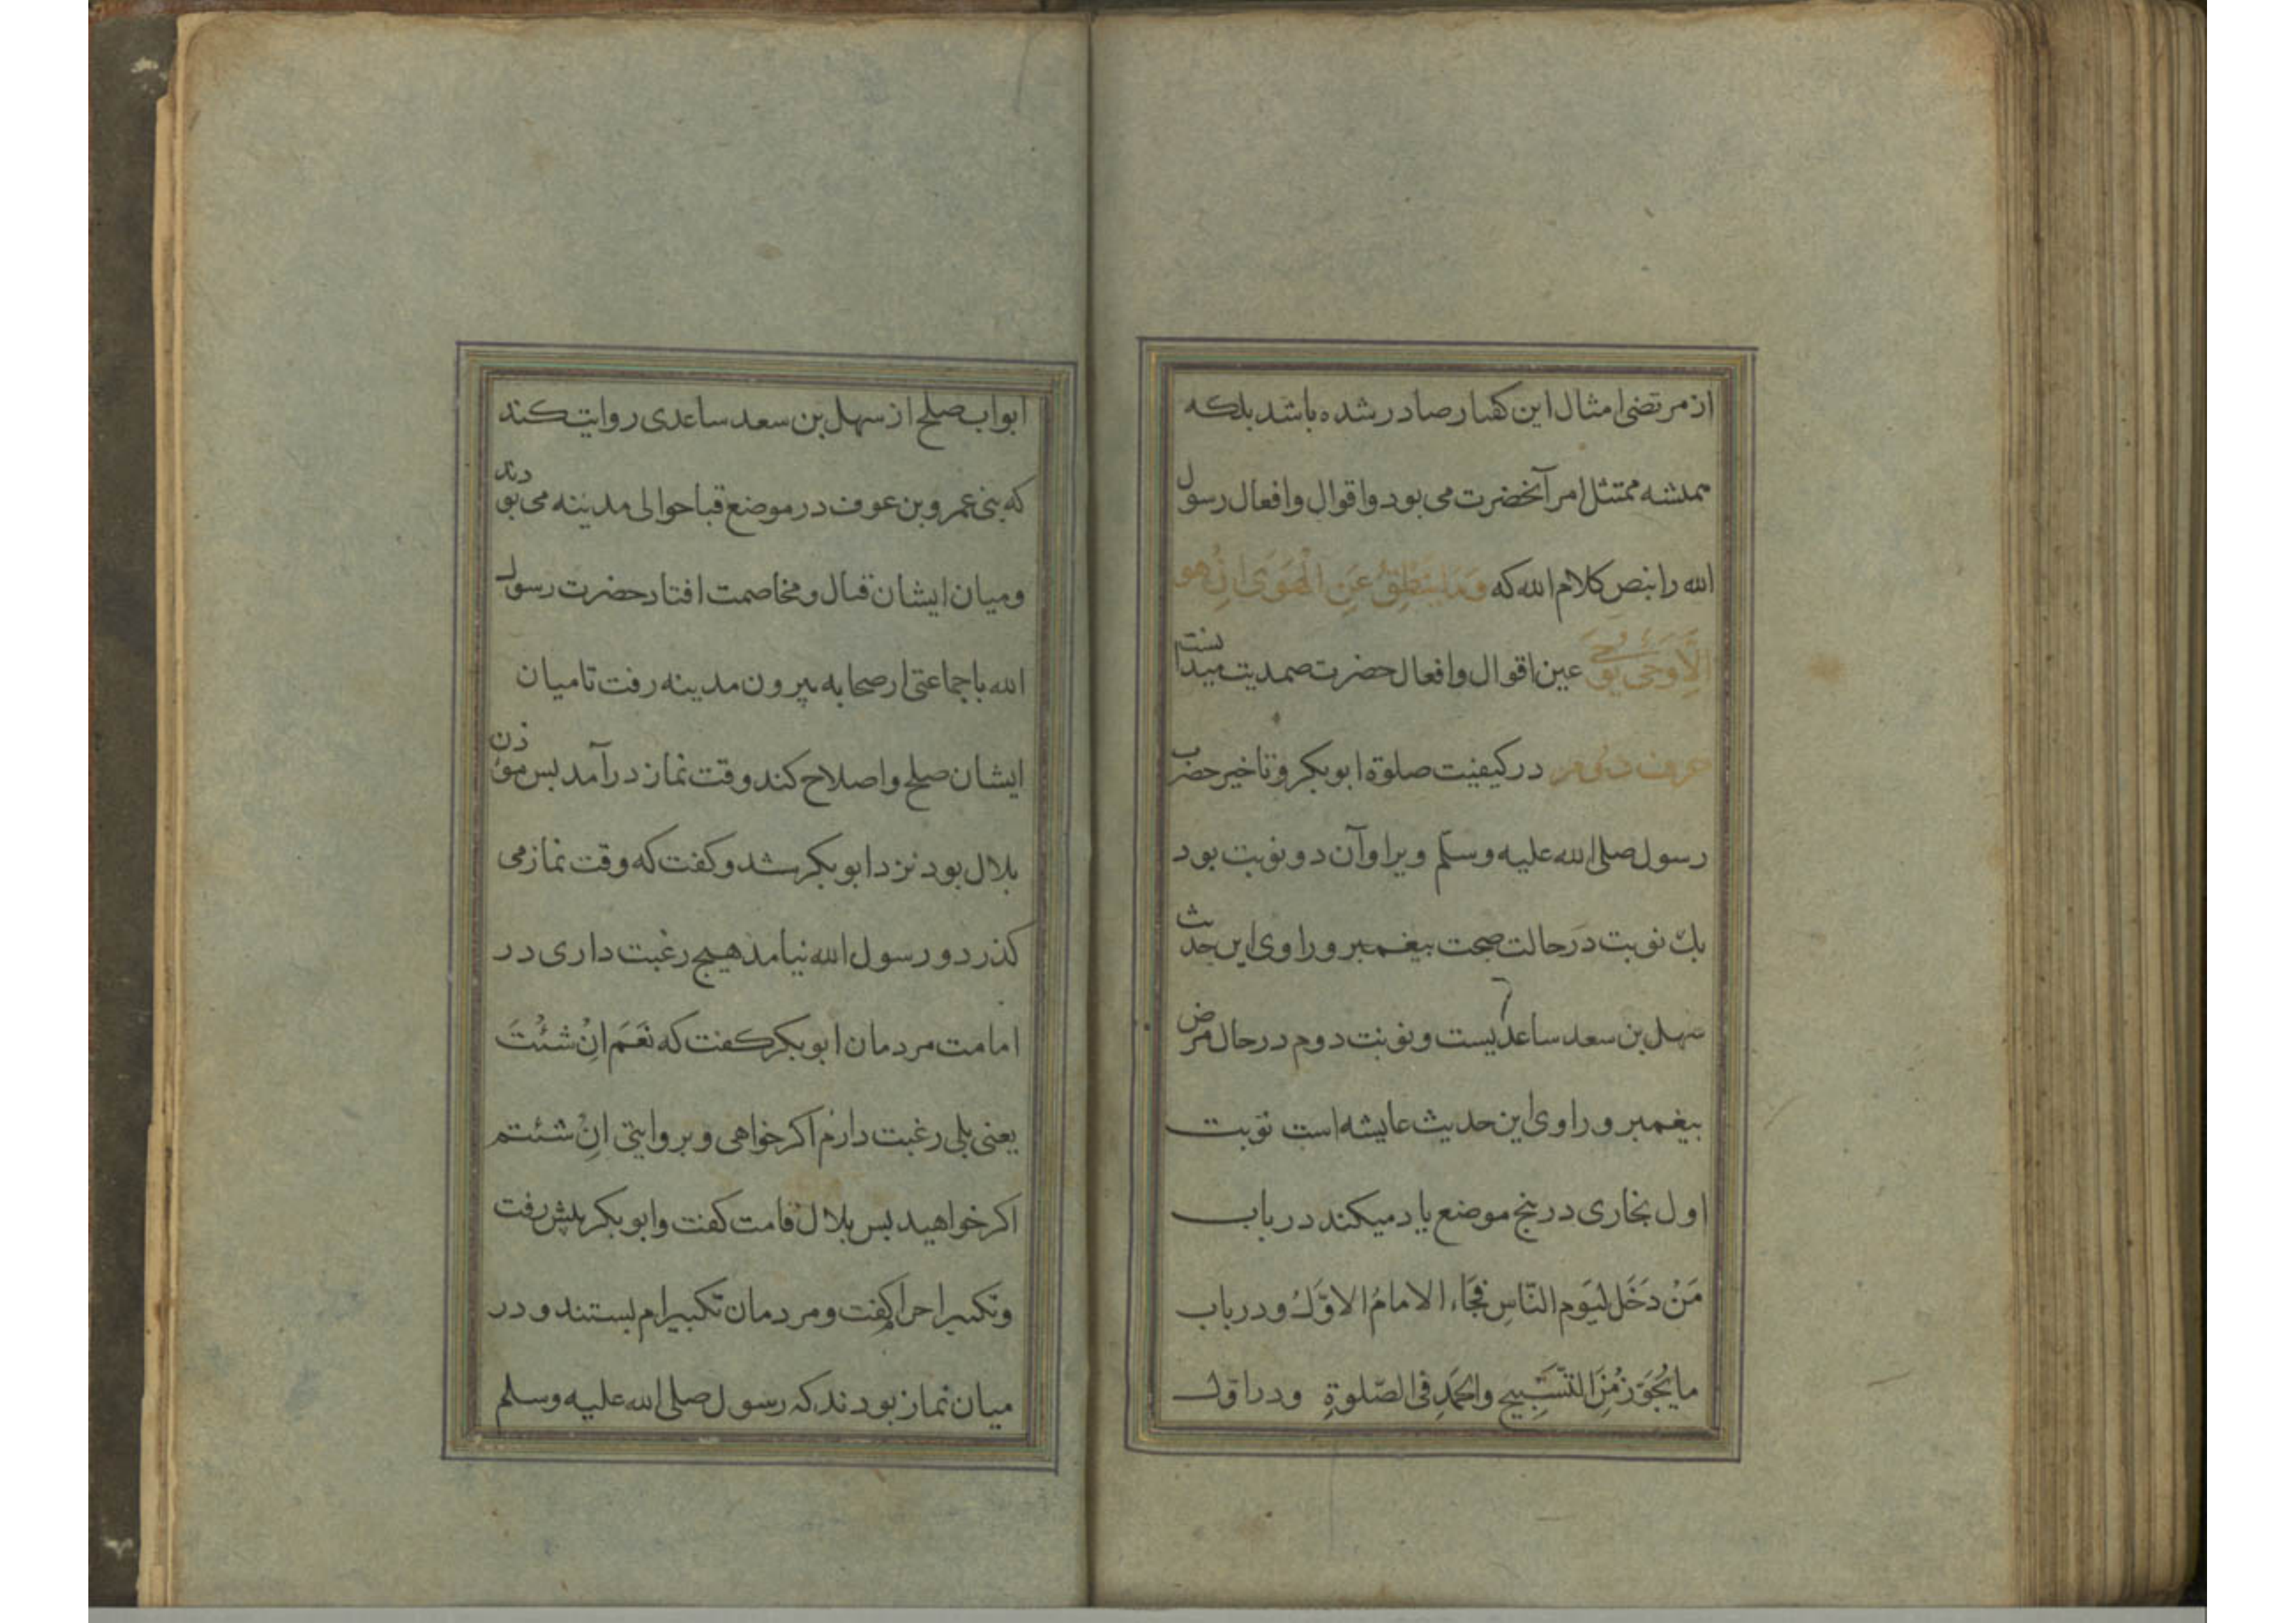 از مرتضی امثال این گفتار صادر شده باشد بلکه
همیشه ممتثل امر آنحضرت می بود واقوال وافعال رسول
الله را بنص کلام الله که وَمَا یَنْطِقُ عَنِ الْهَوَی اِنْ هو
اِلَّا وَحْیٌ یُوحَی عین اقوال وافعال حضرت صمدیت میدانست
حرف دوم در کیفیت صلوة ابوبکر وتاخیر حضرت
رسول صلی الله علیه وسلم ویرا وآن دو نوبت بود
یك نوبت در حالت صحت پیغمبر وراوی این حدیث
سهل بن سعد ساعدیست ونوبت دوم در حال مرض
پیغمبر وراوی این حدیث عایشه است نوبت
اول بخاری در پنج موضع یاد میکند در باب
مَنْ دَخَلَ لیَوم النّاسِ فَجَاءَ الامامُ الاوّلُ ودر باب
ما یُجَوّزُ مِنَ التّسْبِیحِ والحَمْدِ فی الصّلوةِ ودر اوّل
ابواب صلح از سهل بن سعد ساعدی روایت کند
که بنی عمرو بن عوف در موضع قبا حوالی مدینه می بودند
ومیان ایشان قتال ومخاصمت افتاد حضرت رسول
الله با جماعتی از صحابه بیرون مدینه رفت تا میان
ایشان صلح واصلاح کند وقت نماز درآمد پس مؤذن
بلال بود نزد ابوبکر شد وکفت که وقت نماز می
کذرد ورسول الله نیامد هیچ رغبت داری در
امامت مردمان ابوبکر کفت که نَعَمَ اِنْ شئْتَ
یعنی بلی رغبت دارم اکر خواهی وبروایتی اِنْ شئتم
اکر خواهید پس بلال قامت کفت وابوبکر پیش رفت
وتکبیر احرام کفت ومردمان تکبیرام بستند ودر
میان نماز بودند که رسول صلی الله علیه وسلم